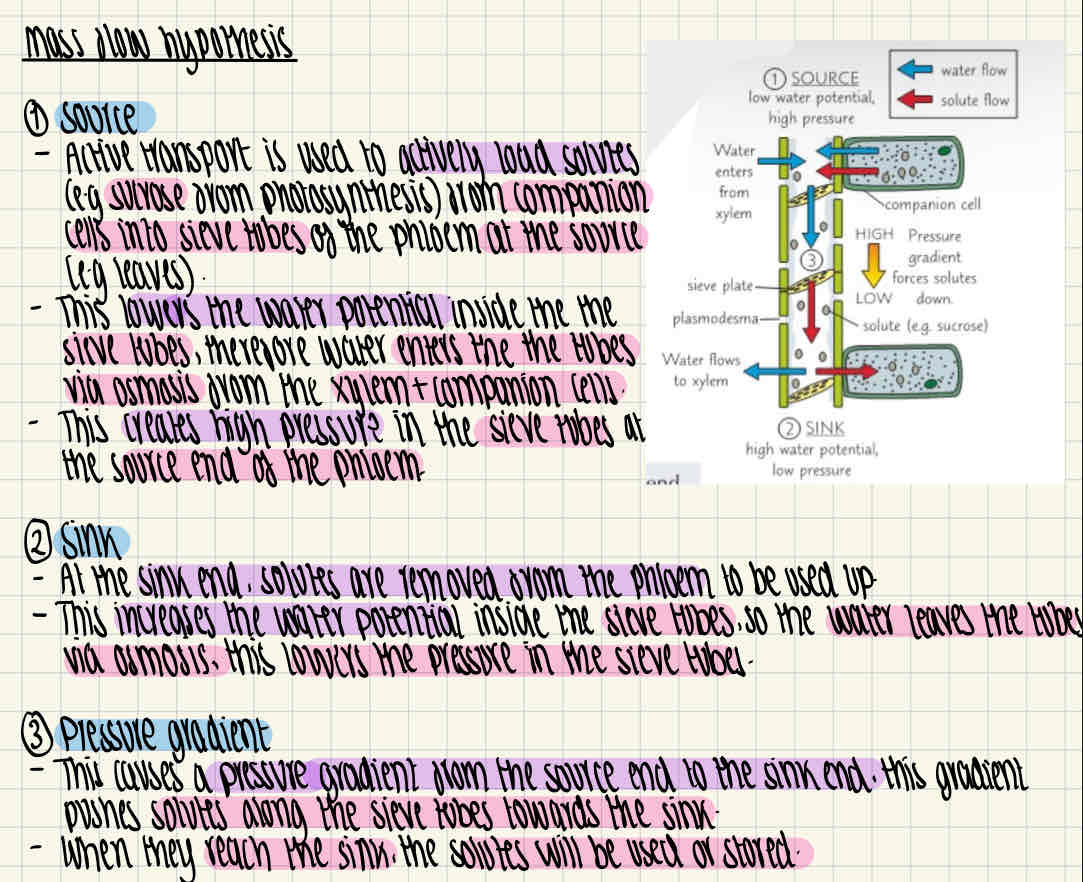 Mass flow hypothesis
① source
- Active transport is used to actively load solutes
(e.g sucrose from photosynthesis) from companion
cells into sieve tubes of the phloem at the source
(e.g leaves).
- This lowers the water potential inside the the
sieve tubes, therefore water enters the the tubes
via osmosis from the xylem + companion cells.
- This creates high pressure in the sieve tubes at
the source end of the phloem.
① SOURCE
low water potential,
high pressure
water flow
solute flow
Water
enters
from
xylem
companion cell
HIGH
Pressure
gradient
forces solutes
down.
LOW
③
sieve plate
plasmodesma
solute (e.g. sucrose)
Water flows
to xylem
② SINK
high water potential,
low pressure
end
② Sink
- At the sink end, solutes are removed from the phloem to be used up.
- This increases the water potential inside the sieve tubes, so the water leaves the tubes
via osmosis, this lowers the pressure in the sieve tubes.
③ Pressure gradient
- This causes a pressure gradient from the source end to the sink end, this gradient
pushes solutes along the sieve tubes towards the sink.
- When they reach the sink, the solutes will be used or stored.